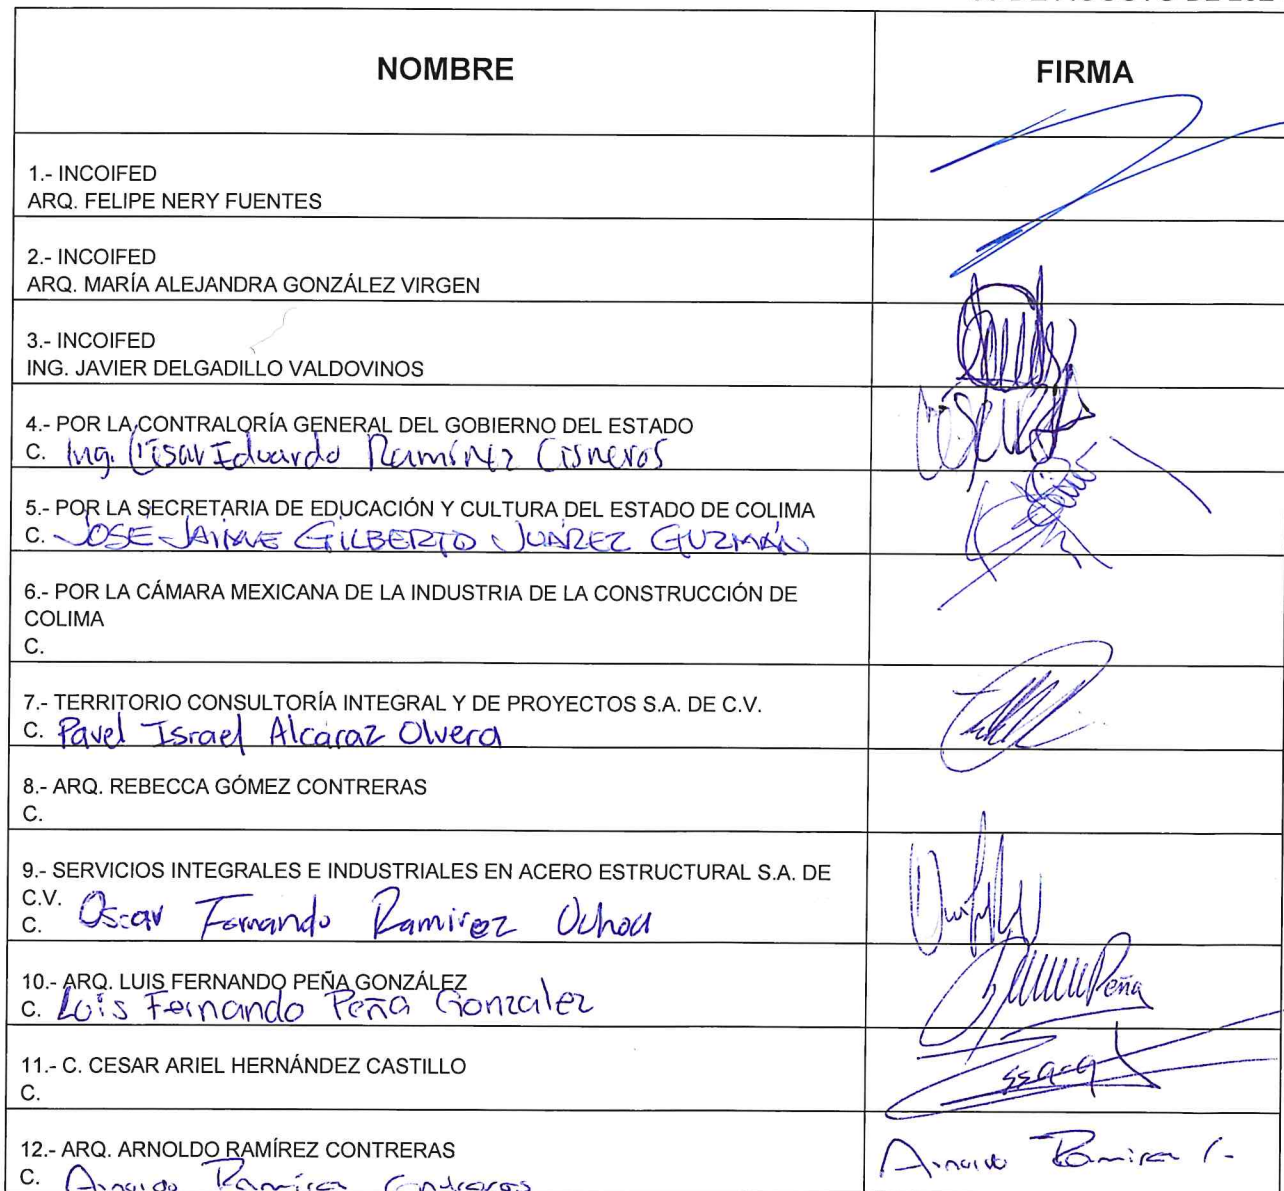 NOMBRE
FIRMA
1.- INCOIFED
ARQ. FELIPE NERY FUENTES
2.- INCOIFED
ARQ. MARÍA ALEJANDRA GONZÁLEZ VIRGEN
3.- INCOIFED
ING. JAVIER DELGADILLO VALDOVINOS
4.- POR LA CONTRALORÍA GENERAL DEL GOBIERNO DEL ESTADO
C. Ing. César Eduardo Ramírez Cisneros
5.- POR LA SECRETARIA DE EDUCACIÓN Y CULTURA DEL ESTADO DE COLIMA
C. JOSE JAIME GILBERTO JUÁREZ GUZMÁN
6.- POR LA CÁMARA MEXICANA DE LA INDUSTRIA DE LA CONSTRUCCIÓN DE
COLIMA
C.
7.- TERRITORIO CONSULTORÍA INTEGRAL Y DE PROYECTOS S.A. DE C.V.
C. Pavel Israel Alcaraz Olvera
8.- ARQ. REBECCA GÓMEZ CONTRERAS
C.
9.- SERVICIOS INTEGRALES E INDUSTRIALES EN ACERO ESTRUCTURAL S.A. DE
C.V.
C. Oscar Fernando Ramirez Ochoa
10.- ARQ. LUIS FERNANDO PEÑA GONZÁLEZ
C. Luis Fernando Peña Gonzalez
Peña
11.- C. CESAR ARIEL HERNÁNDEZ CASTILLO
C.
12.- ARQ. ARNOLDO RAMÍREZ CONTRERAS
C. Arnoldo Ramírez Contreras
Arnoldo Ramirez C.